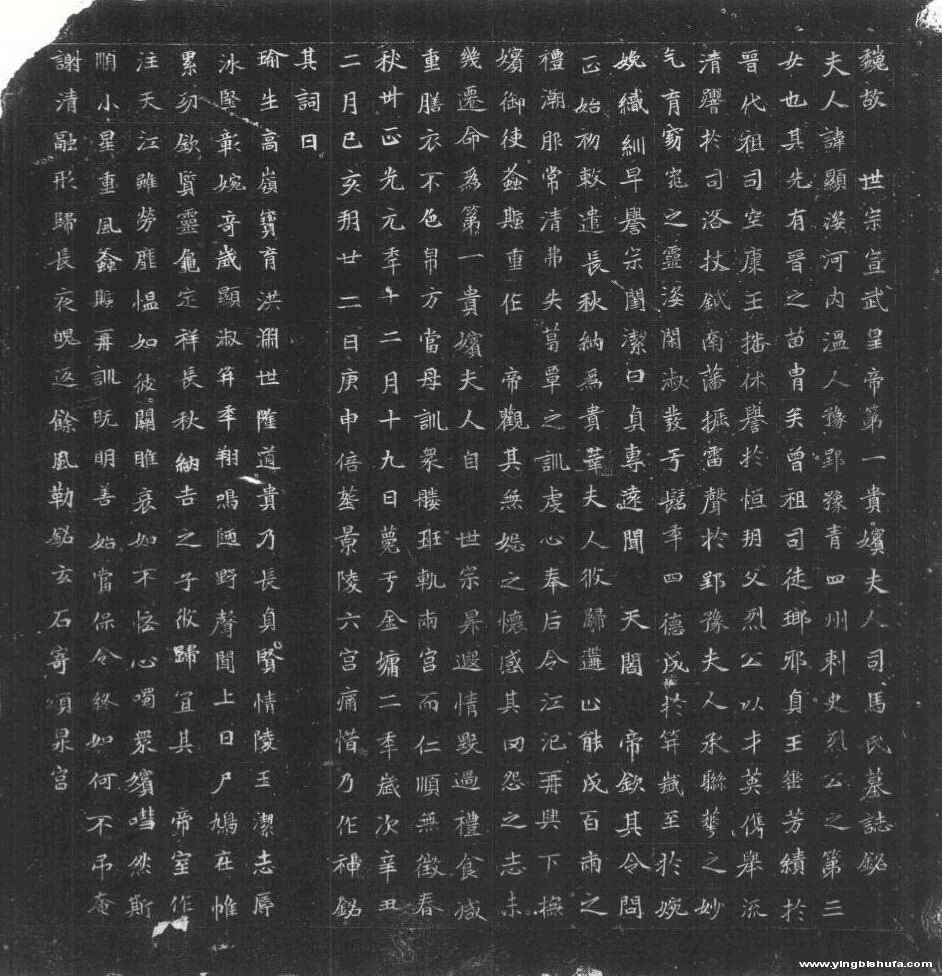 魏故　世宗宣武皇帝第一貴嬪夫人司馬氏墓誌銘
夫人諱顯姿河内溫人豫郢豫青四州刺史烈公之第三
女也其先有晉之苗胄矣曾祖司徒瑯邪貞王垂芳績於
晉代祖司空康王播休譽於恒朔父烈公以才英儁舉流
清響於司洛杖鉞南藩振雷聲於郢豫夫人承聯華之妙
氣育窈窕之靈姿閑淑發于髫年四德成於笄歲至於婉
娩織紃早譽宗閨潔白貞專遠聞　天閤　帝欽其令問
正始初敕遣長秋納爲貴華夫人攸歸遘止能成百兩之
禮澣服常清弗失葛覃之訓虔心奉后令江汜再興下撫
嬪御使螽斯重作　帝觀其無妬之懷感其罔怨之志未
幾遷命爲第一貴嬪夫人自　世宗昇遐情毀過禮食減
重膳衣不色帛方當母訓衆媵班軌兩宮而仁順無徵春
秋卅正光元年十二月十九日薨于金墉二年歲次辛丑
二月己亥朔廿二日庚申倍葬景陵六宮痛惜乃作神銘
其詞曰
瑜生高嶺寶育洪淵世隆道貴乃長貞賢情陵玉潔志厲
冰堅彰婉奇歲顯淑笄年翔鳴陋野聲聞上日尸鳩在帷
累礽欽質靈龜定祥長秋納吉之子攸歸宜其　帝室作
注天江雖勞靡慍如彼關雎哀如不怪心噣衆嬪嘒然斯
順小星重風螽斯再訓既明善始當保令終如何不弔奄
謝清融形歸長夜魄返餘風勒銘玄石寄頌泉宮
www.yingbishufa.com